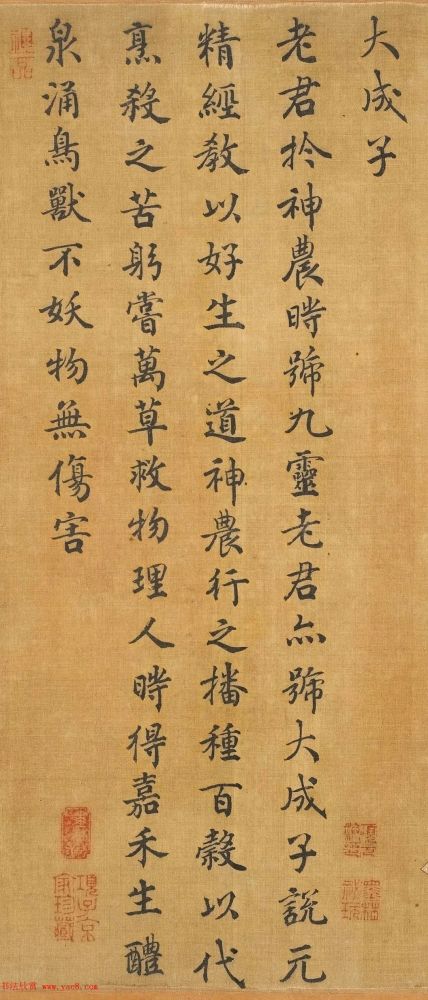 大成子
老君於神農時號九靈老君亦號大成子說元
精經教以好生之道神農行之播種百穀以代
烹殺之苦躬嘗萬草救物理人時得嘉禾生醴
泉涌鳥獸不妖物無傷害
項子京
家珍藏
书法欣赏 www.yac8.com